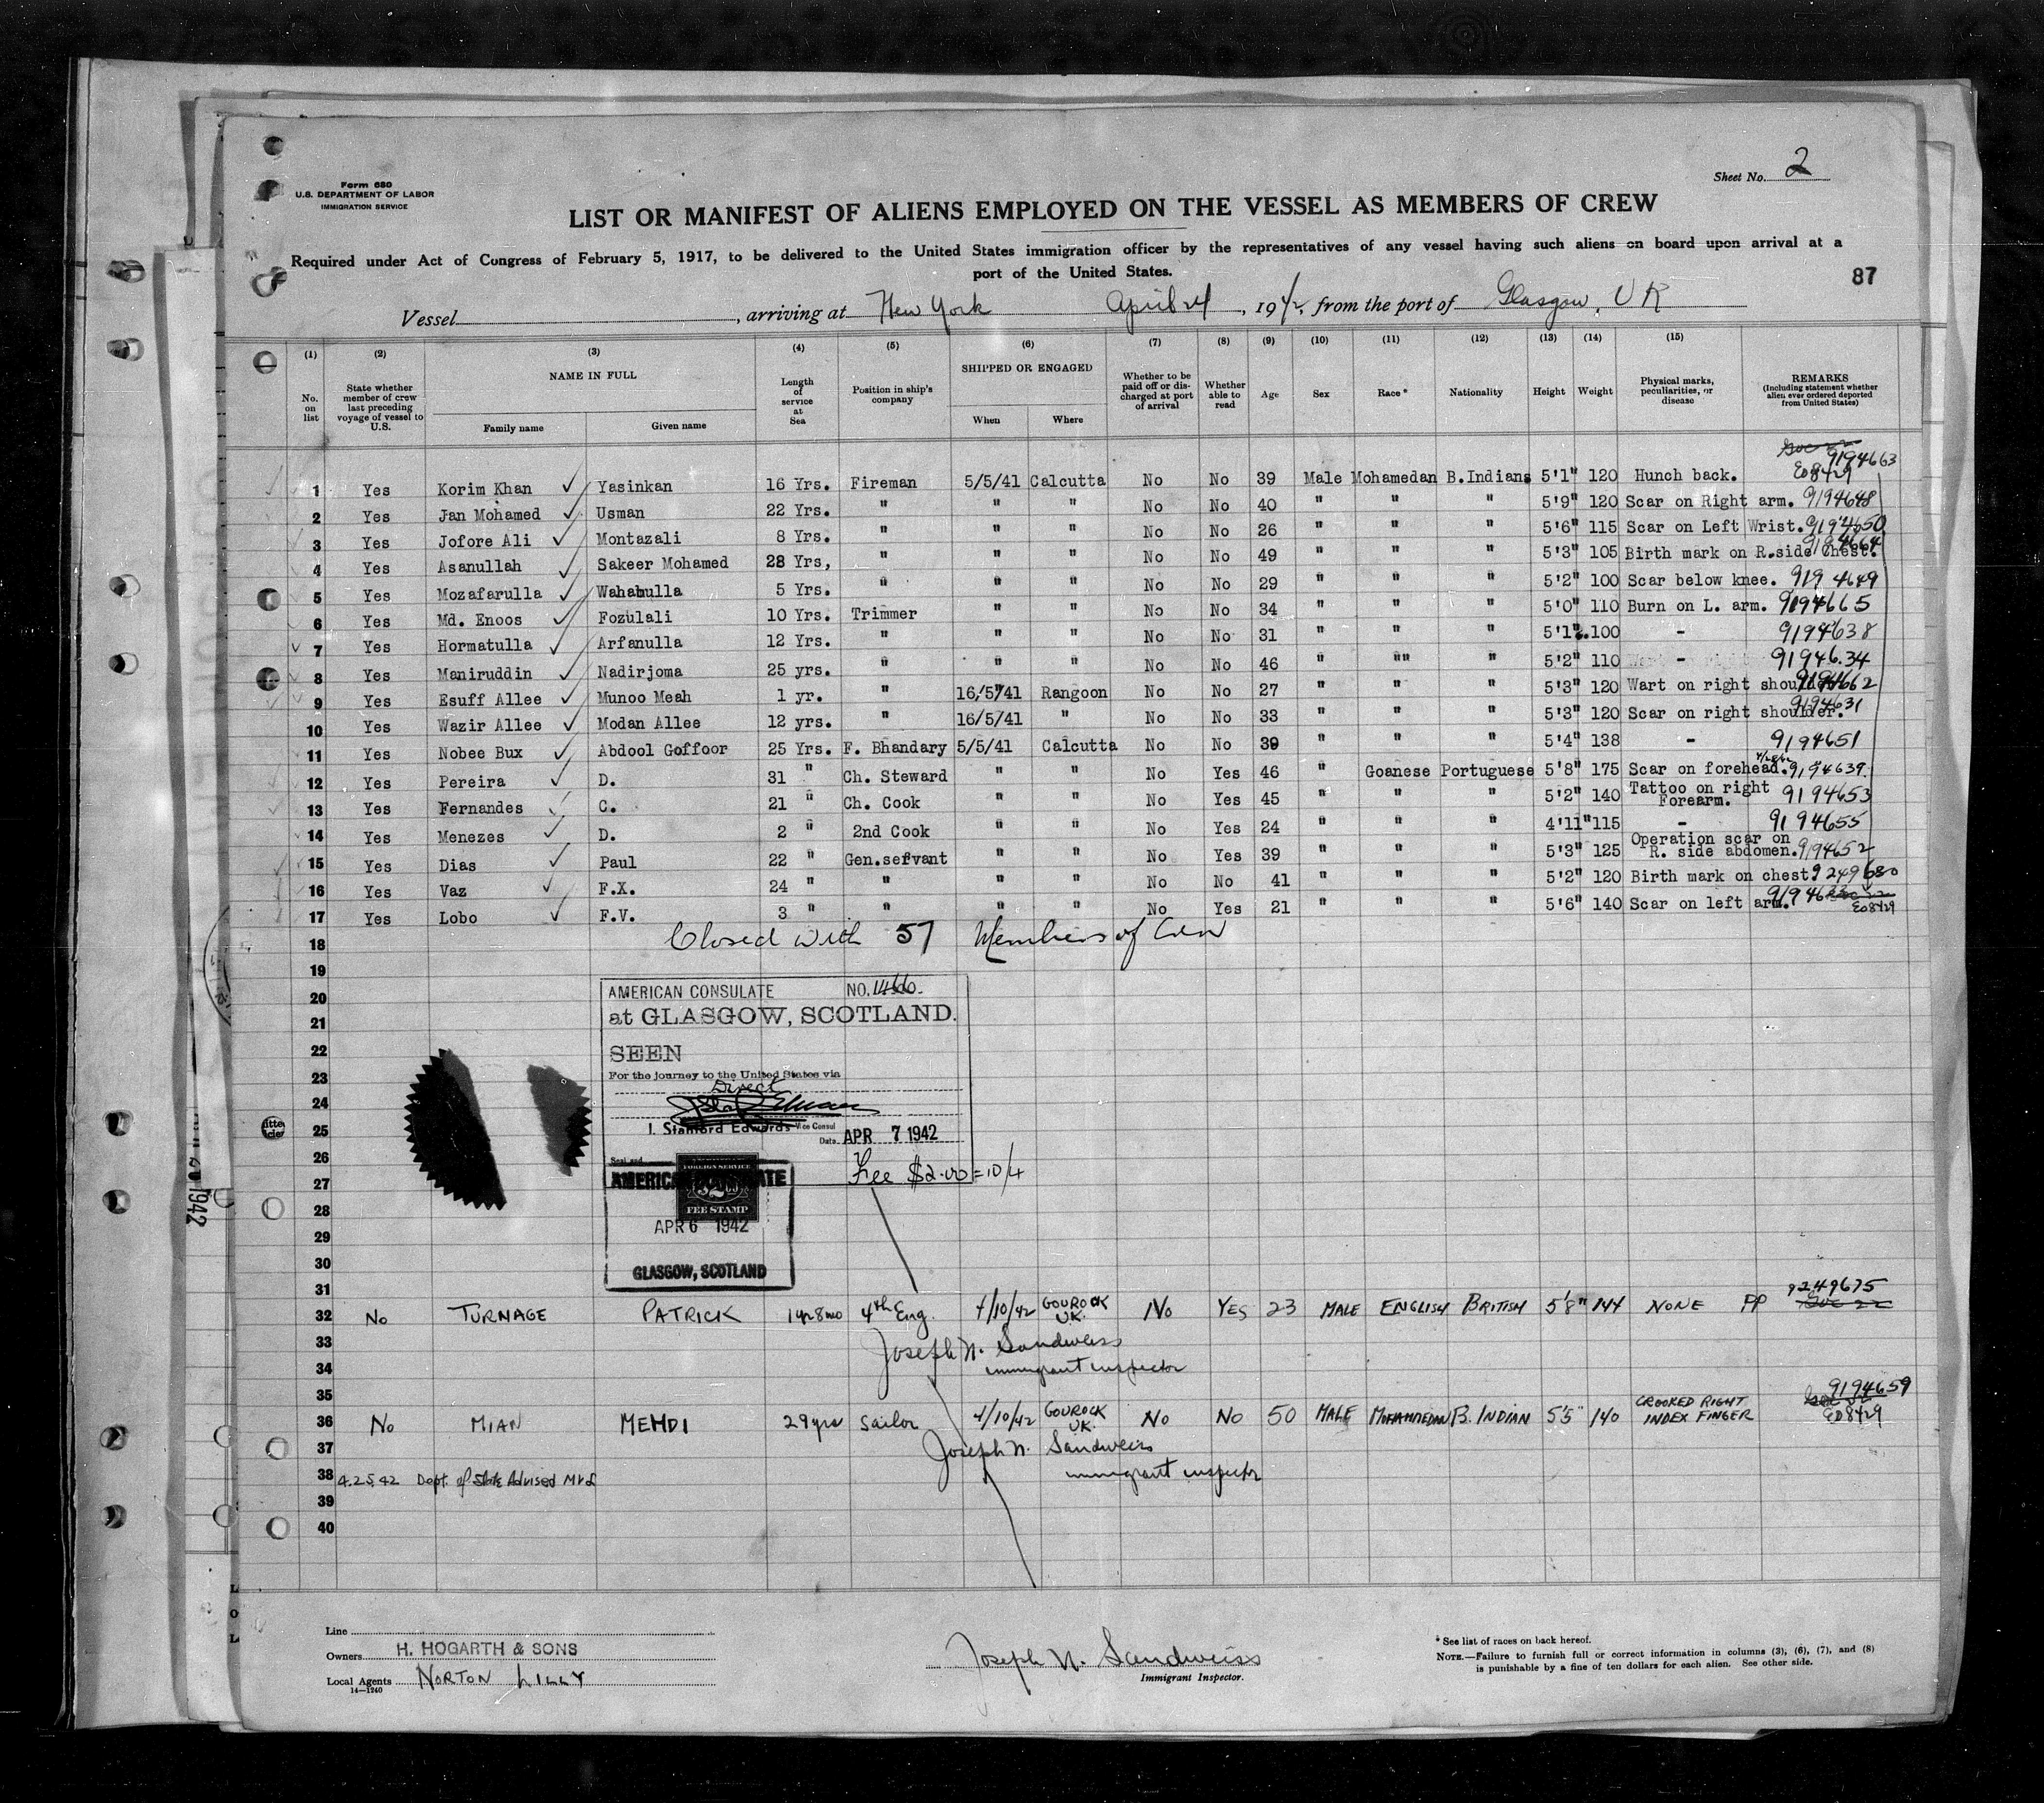 Form 680
U.S. DEPARTMENT OF LABOR
IMMIGRATION SERVICE
Sheet No. 2
LIST OR MANIFEST OF ALIENS EMPLOYED ON THE VESSEL AS MEMBERS OF CREW
Required under Act of Congress of February 5, 1917, to be delivered to the United States immigration officer by the representatives of any vessel having such aliens on board upon arrival at a
port of the United States.
87
Vessel , arriving at New York April 24 , 1942, from the port of Glasgow, UK
(1) (2) (3) (4) (5) (6) (7) (8) (9) (10) (11) (12) (13) (14) (15)
No. on list State whether member of crew last preceding voyage of vessel to U.S. NAME IN FULL Family name Given name Length of service at Sea Position in ship's company SHIPPED OR ENGAGED When Where Whether to be paid off or discharged at port of arrival Whether able to read Age Sex Race* Nationality Height Weight Physical marks, peculiarities, or disease REMARKS (Including statement whether alien ever ordered deported from United States)
1 Yes Korim Khan Yasinkan 16 Yrs. Fireman 5/5/41 Calcutta No No 39 Male Mohamedan B.Indians 5'1" 120 Hunch back. 9194663 E08429
2 Yes Jan Mohamed Usman 22 Yrs. " " " No No 40 " " " 5'9" 120 Scar on Right arm. 9194648
3 Yes Jofore Ali Montazali 8 Yrs. " " " No No 26 " " " 5'6" 115 Scar on Left Wrist. 9194650
4 Yes Asanullah Sakeer Mohamed 28 Yrs, " " " No No 49 " " " 5'3" 105 Birth mark on R.side Chest. 9194664
5 Yes Mozafarulla Wahabulla 5 Yrs. " " " No No 29 " " " 5'2" 100 Scar below knee. 9194649
6 Yes Md. Enoos Fozulali 10 Yrs. Trimmer " " No No 34 " " " 5'0" 110 Burn on L. arm. 9194665
7 Yes Hormatulla Arfanulla 12 Yrs. " " " No No 31 " " " 5'1" 100 - 9194638
8 Yes Maniruddin Nadirjoma 25 yrs. " " " No No 46 " "" " 5'2" 110 - 9194634
9 Yes Esuff Allee Munoo Meah 1 yr. " 16/5/41 Rangoon No No 27 " " " 5'3" 120 Wart on right shoulder. 9194662
10 Yes Wazir Allee Modan Allee 12 yrs. " 16/5/41 " No No 33 " " " 5'3" 120 Scar on right shoulder. 9194631
11 Yes Nobee Bux Abdool Goffoor 25 Yrs. F. Bhandary 5/5/41 Calcutta No No 39 " " " 5'4" 138 - 9194651
12 Yes Pereira D. 31 " Ch. Steward " " No Yes 46 " Goanese Portuguese 5'8" 175 Scar on forehead. 9194639
13 Yes Fernandes C. 21 " Ch. Cook " " No Yes 45 " " " 5'2" 140 Tattoo on right Forearm. 9194653
14 Yes Menezes D. 2 " 2nd Cook " " No Yes 24 " " " 4'11" 115 - 9194655
15 Yes Dias Paul 22 " Gen.servant " " No Yes 39 " " " 5'3" 125 Operation scar on R. side abdomen. 9194652
16 Yes Vaz F.X. 24 " " " " No No 41 " " " 5'2" 120 Birth mark on chest 9249680
17 Yes Lobo F.V. 3 " " " " No Yes 21 " " " 5'6" 140 Scar on left arm. E08429
18 Closed with 57 Members of Crew
19
20 AMERICAN CONSULATE NO. 14660.
21 at GLASGOW, SCOTLAND.
22 SEEN
23 For the journey to the United States via
Direct
24
25 I. Stanford Edwards Vice Consul
Date APR 7 1942
26 Seal and
Fee $2.00 = 10/4
27 AMERICAN CONSULATE
FOREIGN SERVICE
FEE STAMP
28 APR 6 1942
29
30 GLASGOW, SCOTLAND
31
32 No TURNAGE PATRICK 1yr 8mo 4th Eng. 4/10/42 GOUROCK UK. No YES 23 MALE ENGLISH BRITISH 5'8" 144 NONE PP 9249675
33 Joseph N. Sandweiss
34 immigrant inspector
35
36 No MIAN MEHDI 29yrs Sailor 4/10/42 GOUROCK UK. No No 50 MALE MOHAMMEDAN B. INDIAN 5'5" 140 CROOKED RIGHT INDEX FINGER 9194659 E08429
37 Joseph N. Sandweiss
38 4.25.42 Dept. of State Advised immigrant inspector
39
40
Line
Owners H. HOGARTH & SONS
Local Agents NORTON LILLY
14—1240
Joseph N. Sandweiss
Immigrant Inspector.
* See list of races on back hereof.
NOTE.—Failure to furnish full or correct information in columns (3), (6), (7), and (8)
is punishable by a fine of ten dollars for each alien. See other side.
1942